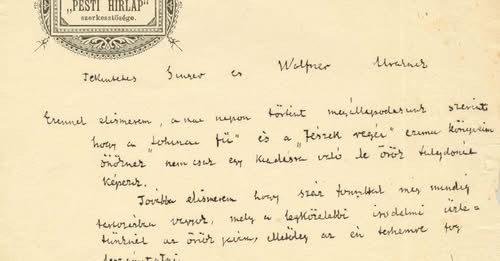 „PESTI HIRLAP“
szerkesztősége.
Tekintetes Singer és Wolfner Uraknak
Ezennel elismerem, a mai napon történt megállapodásunk szerint
hogy a „tohinai fű“ és a „Fészek regéi“ czimü könyveim
önöknek nem csak egy kiadásra való de örök tulajdonát
képezik.
Továbbá elismerem hogy száz forinttal még mindig
tartozásba vagyok, mely a legközelebbi irodalmi üzle-
tünknél az önök javára, illetőleg az én terhemre fog